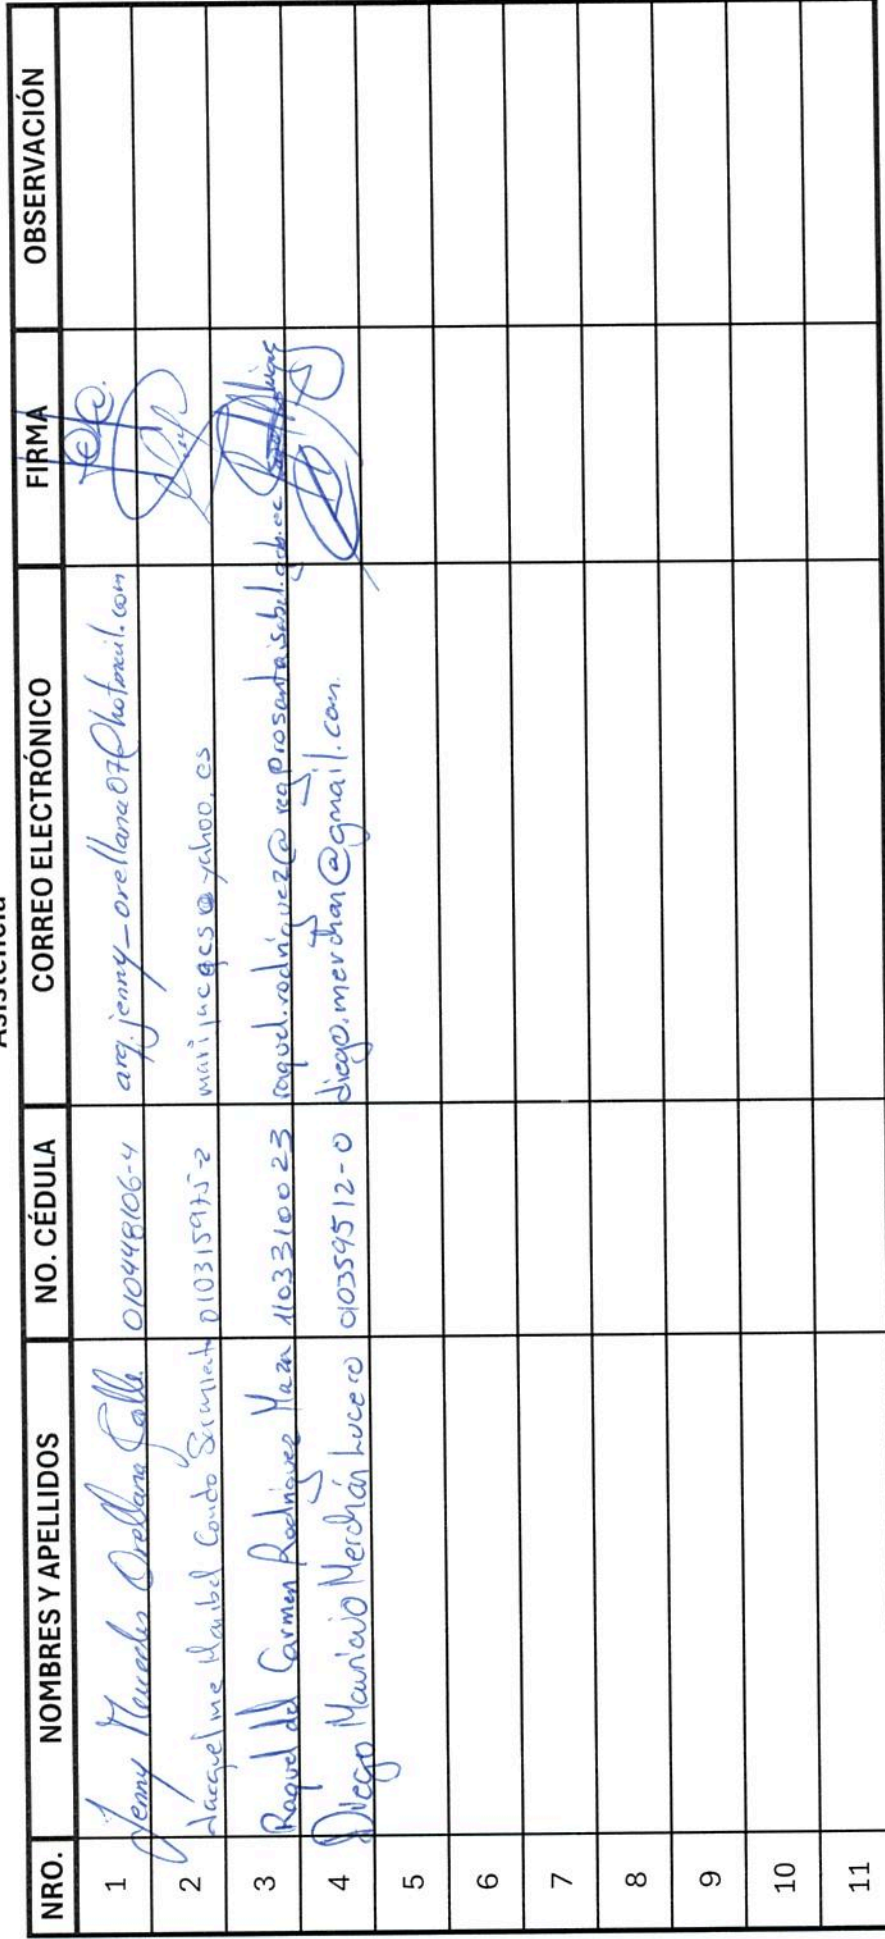 Asistencia
NRO. NOMBRES Y APELLIDOS NO. CÉDULA CORREO ELECTRÓNICO FIRMA OBSERVACIÓN
1 Jenny Mercedes Orellana Calle 010448106-4 arq.jenny_orellana07@hotmail.com
2 Jacqueline Maribel Condo 010315975-2 marijacqcs@yahoo.es
3 Raquel del Carmen Rodríguez Maza 1103310023 raquel.rodriguez@regprosantaisabel.gob.ec
4 Diego Mauricio Merchán Lucero 010359512-0 diego.merchan@gmail.com
5
6
7
8
9
10
11